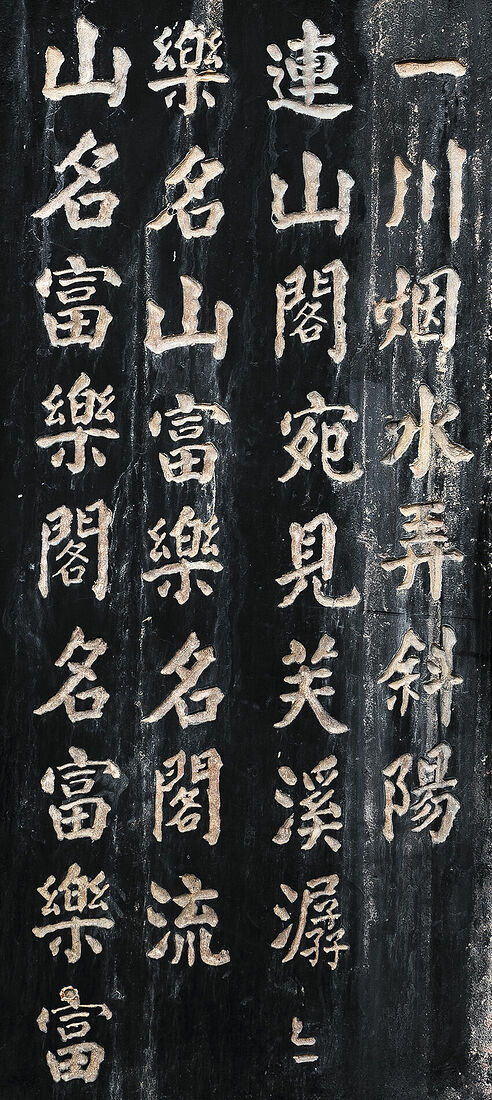 一川烟水弄斜陽
連山閣宛見芙溪潺〻
樂名山富樂名閣流
山名富樂閣名富樂富